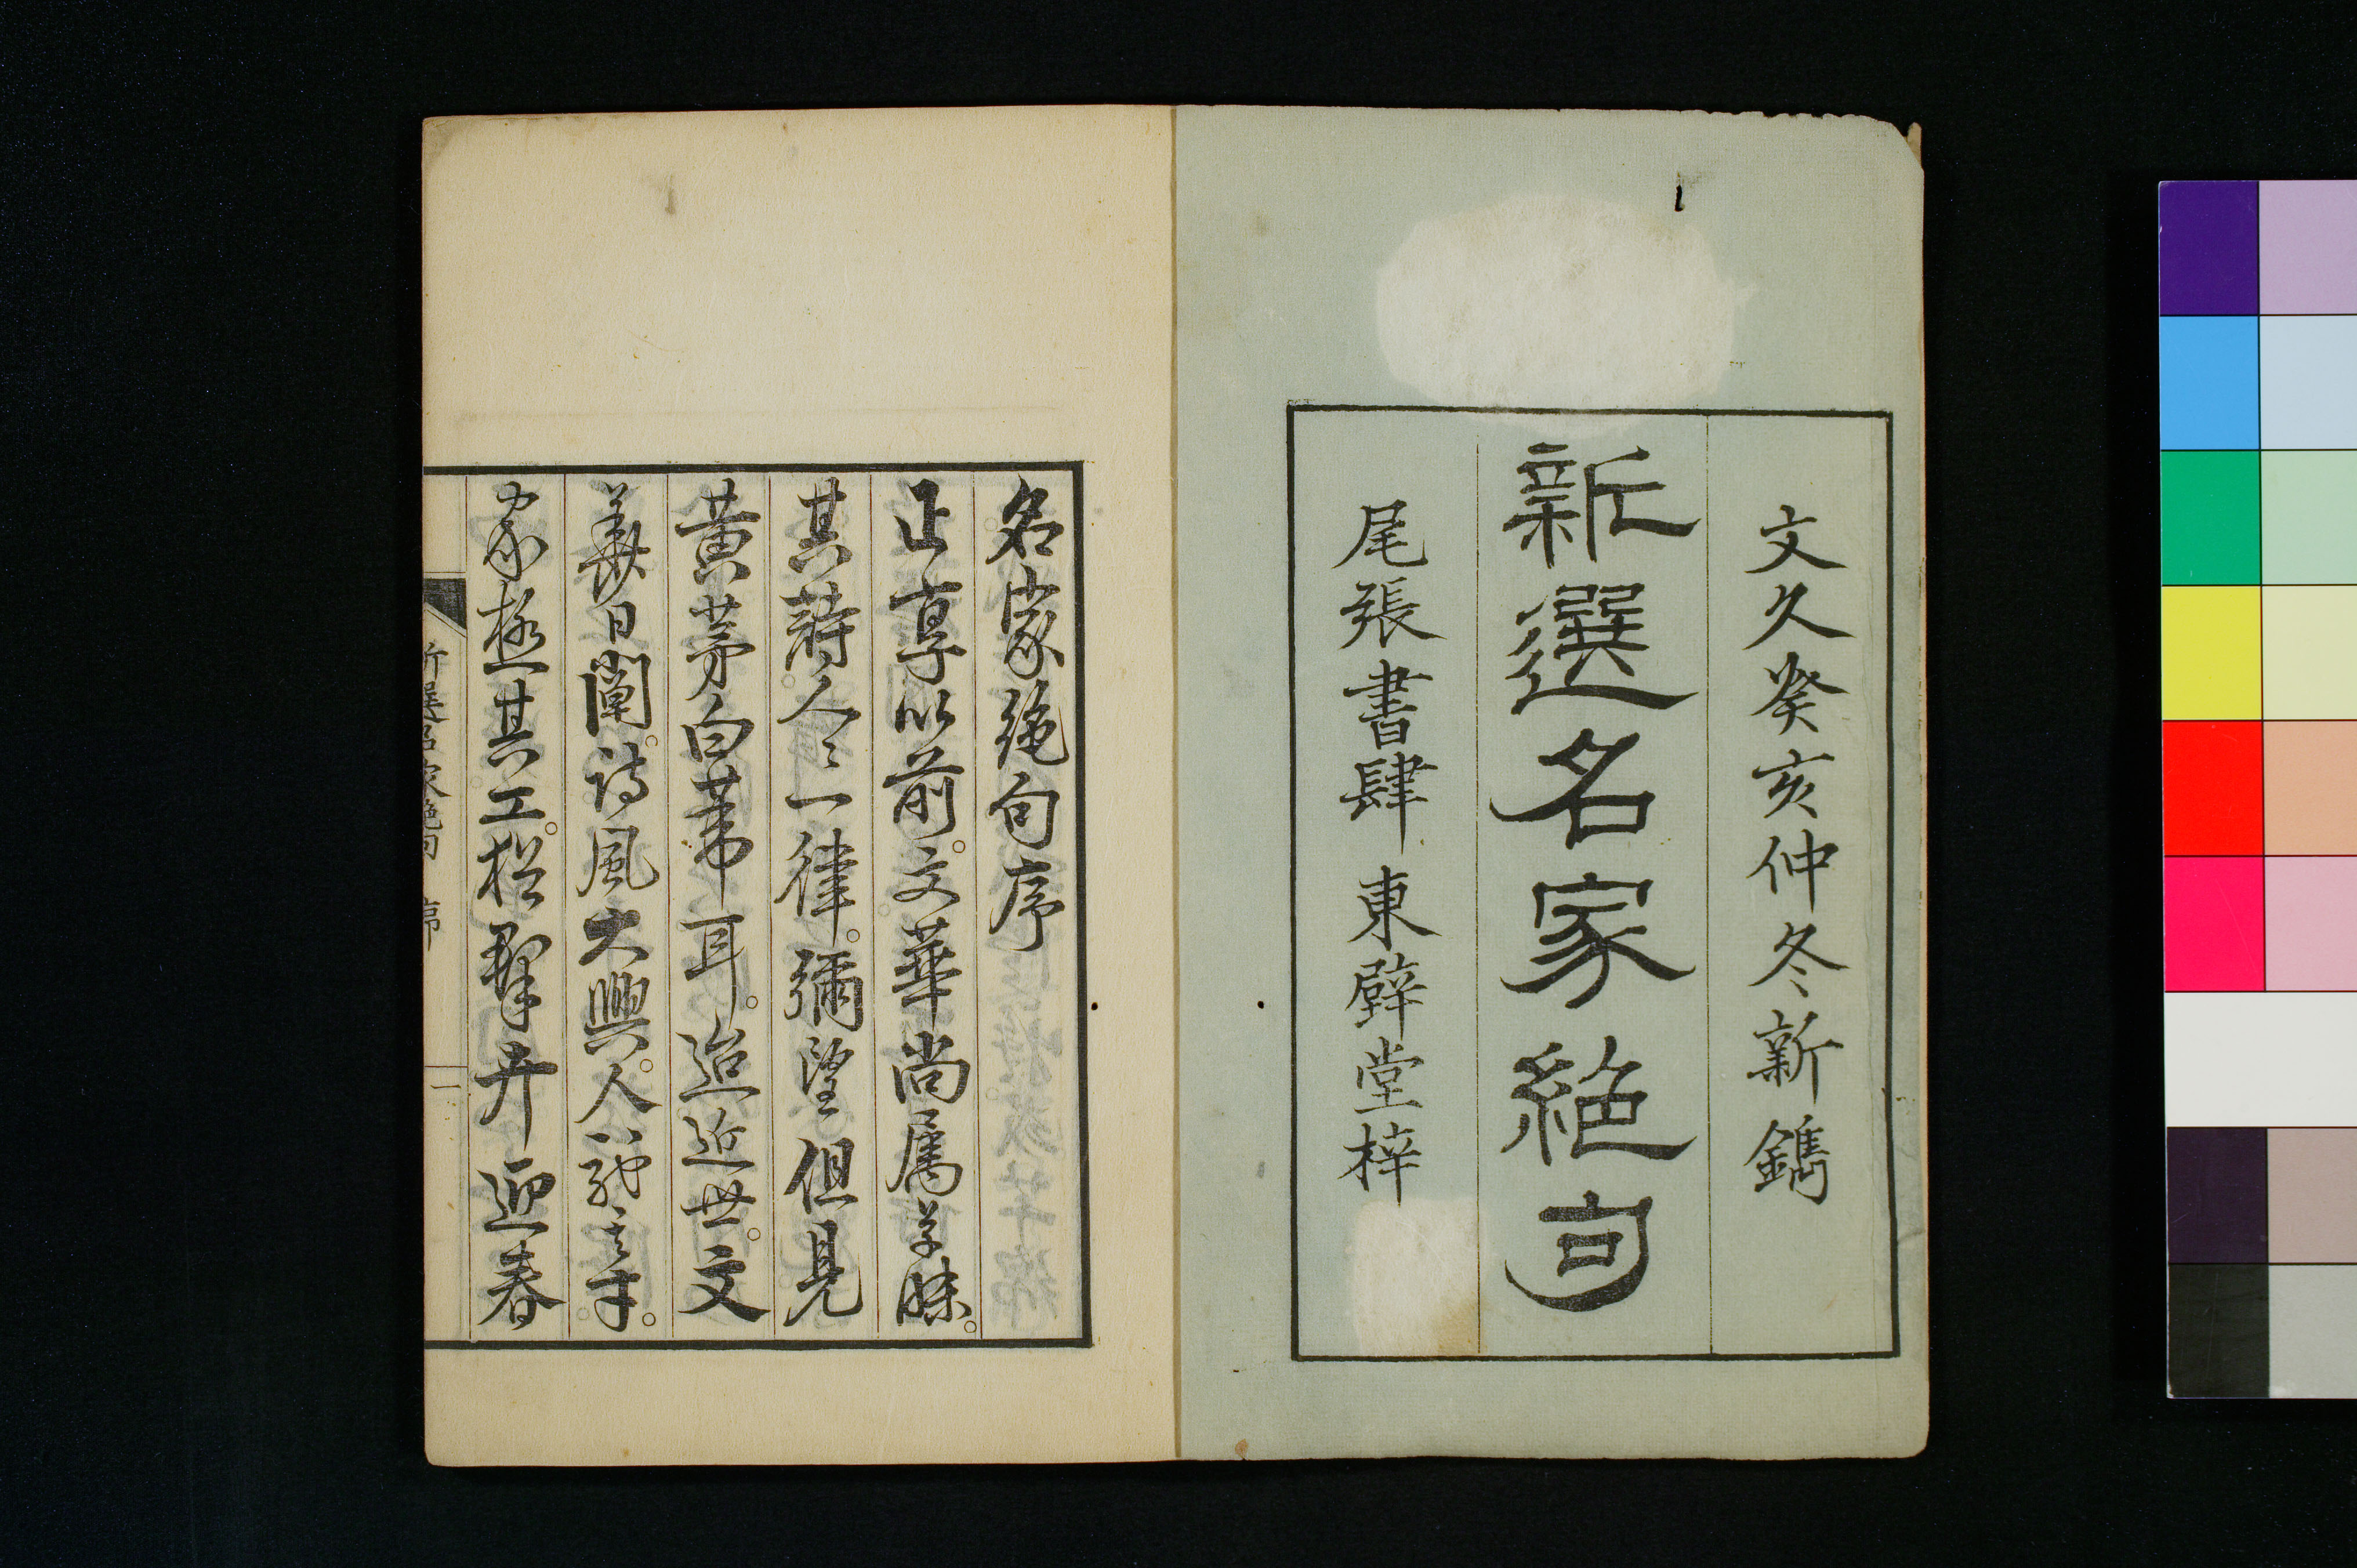 文久癸亥仲冬新鐫
新選名家絶句
尾張書肆 東壁堂梓
名家絶句序
正享以前。文華尚属草昧。
其詩人〻一律。彌望但見
黄茅白葦耳。迨近世。文
日闡。詩風大興。人
家極其工。群卉迎春
新選名家絶句 序 一